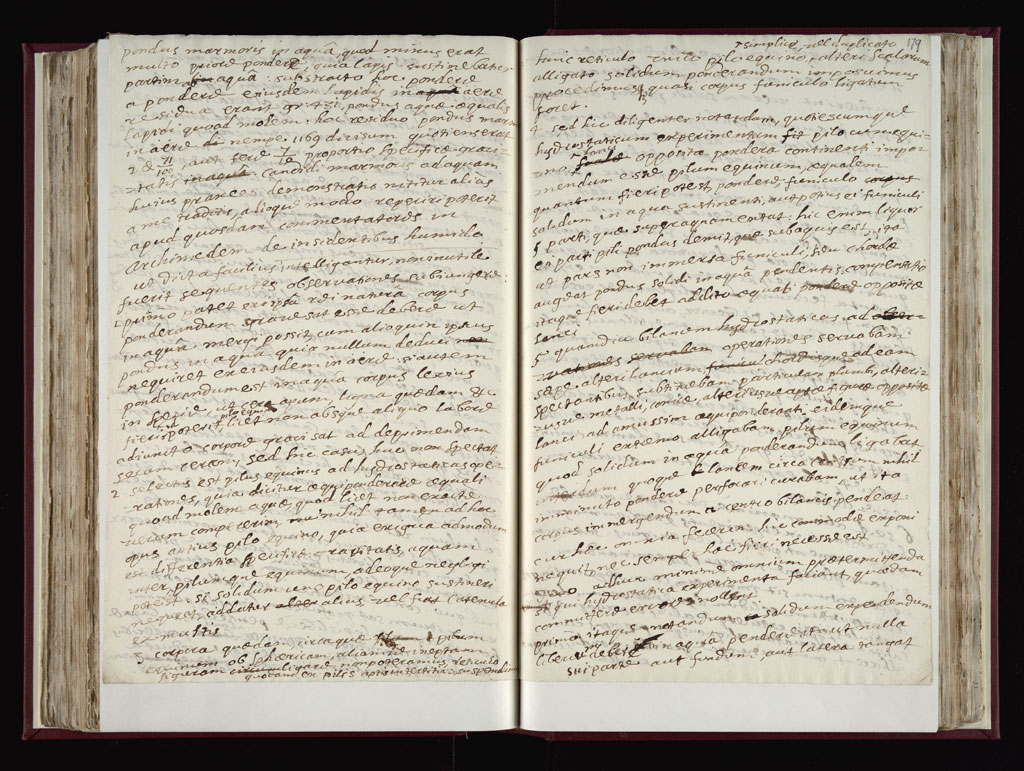 pondus marmoris in aquâ, quod minus erat
multo priore pondere, quia lapis sustinebatur
partim aqua: substracto hoc pondere
a pondere eiusdem lapidis in aere
residua erant gr: 431, pondus aquæ æqualis
lapidi quoad molem: hoc residuo pondus marm
in aere nempe 1169 divisum quotiens erat
2 & 71/100 aut fere 7/10 proportio specificæ gravi
tatis candidi marmoris ad aquam
huius praxeos demonstratio nititur alias
a me traditis, alioque modo reperiri poterit
apud quosdam commentatores in
Archimedem de insidentibus humido
ut dicta facilius intelligentur, non inutile
fuerit sequentes observationes subiungere.
1 primo patet ex ipsa rei naturâ corpus
ponderandum grave sat esse debere ut
in aquâ mergi possit, cum alioquin ipsius
pondus in aquâ quia nullum deduci
nequiret ex eiusdem in aere: si autem
ponderandum est in aquâ corpus levius
in specie ut cera apum, ligna quædam &c
fieri id poterit, licet non absque aliquo labore
adiuncto corpore gravi sat ad deprimendam
secum ceram, sed hic casus huc non spectat
2 selectus est pilus equinus ad hydrostaticas ope
rationes, quia dicitur æquiponderare æquali
quoad molem aquæ, quod licet non exacte
verum compererim, nihil tamen ad hoc
opus aptius pilo equino, quia exigua admodum
est differentia specificæ gravitatis, aquam
inter pilumque equinum, adeoque negligi
potest. si solidum uno pilo equino sustineri
nequiret, addatur alius vel fiat catenula
ex multis
corpora quædam pilum
equinum ob sphæricam, aliamve ineptam
figuram ligare non poteramus, reticulo
quodam ex pilis apte intertexto suspendim
simplici, vel duplicato 179
tunc reticulo unito pilo equino, alteri scalorum
alligato solidum ponderandum imposuimus
procedimus quasi corpus funiculo ligatum
foret.
4 sed hic diligenter notandum, quotiescumque
hydrostaticum experimentum fit pilo cum equi-
no, lanci oppositæ pondera continenti impo-
nendum esse pilum equinum, æqualem
quantum fieri potest, pondere, funiculo
solidum in aqua sustinenti, aut potius ei funiculi
parti, quæ super aquam extat: hic enim liquor
ei parti pili pondus demit, quæ sub aquis est, ita
ut pars non immersa funiculi, seu chordæ
augeat pondus solidi in aquâ pendentis, compensatio
itaque fieri debet addito æquali oppositæ
lanci
5 quandoque bilancem hydrostaticas ad
operationes servabam
sæpe alteri lancium, ad eam
spectantibus substituebam particulam plumbi, alteri-
usve metalli, conice, alteriusve aptæ figuræ oppositæ
lanci ad amussim æquiponderanti, eidemque
funiculi extremo alligabam pilum equinum
quo solidum in aquâ ponderandum ligabat
quoque lancem circa centrum nihil
imminuto pondere perforari curabam, ut ita
corpus immergendum a centro bilancis pendeat.
cur hoc omnia fecerim hic commode exponi
nequit, nec semper hoc fieri necesse est
minime omnium prætermittenda
qui hydrostatica experimenta faciunt, quosdam
committere errores nollent
primo itaque notandum solidum expendendum
libere debere in aquâ pendere ita ut nulla
sui parte aut fundum, aut latera tangat